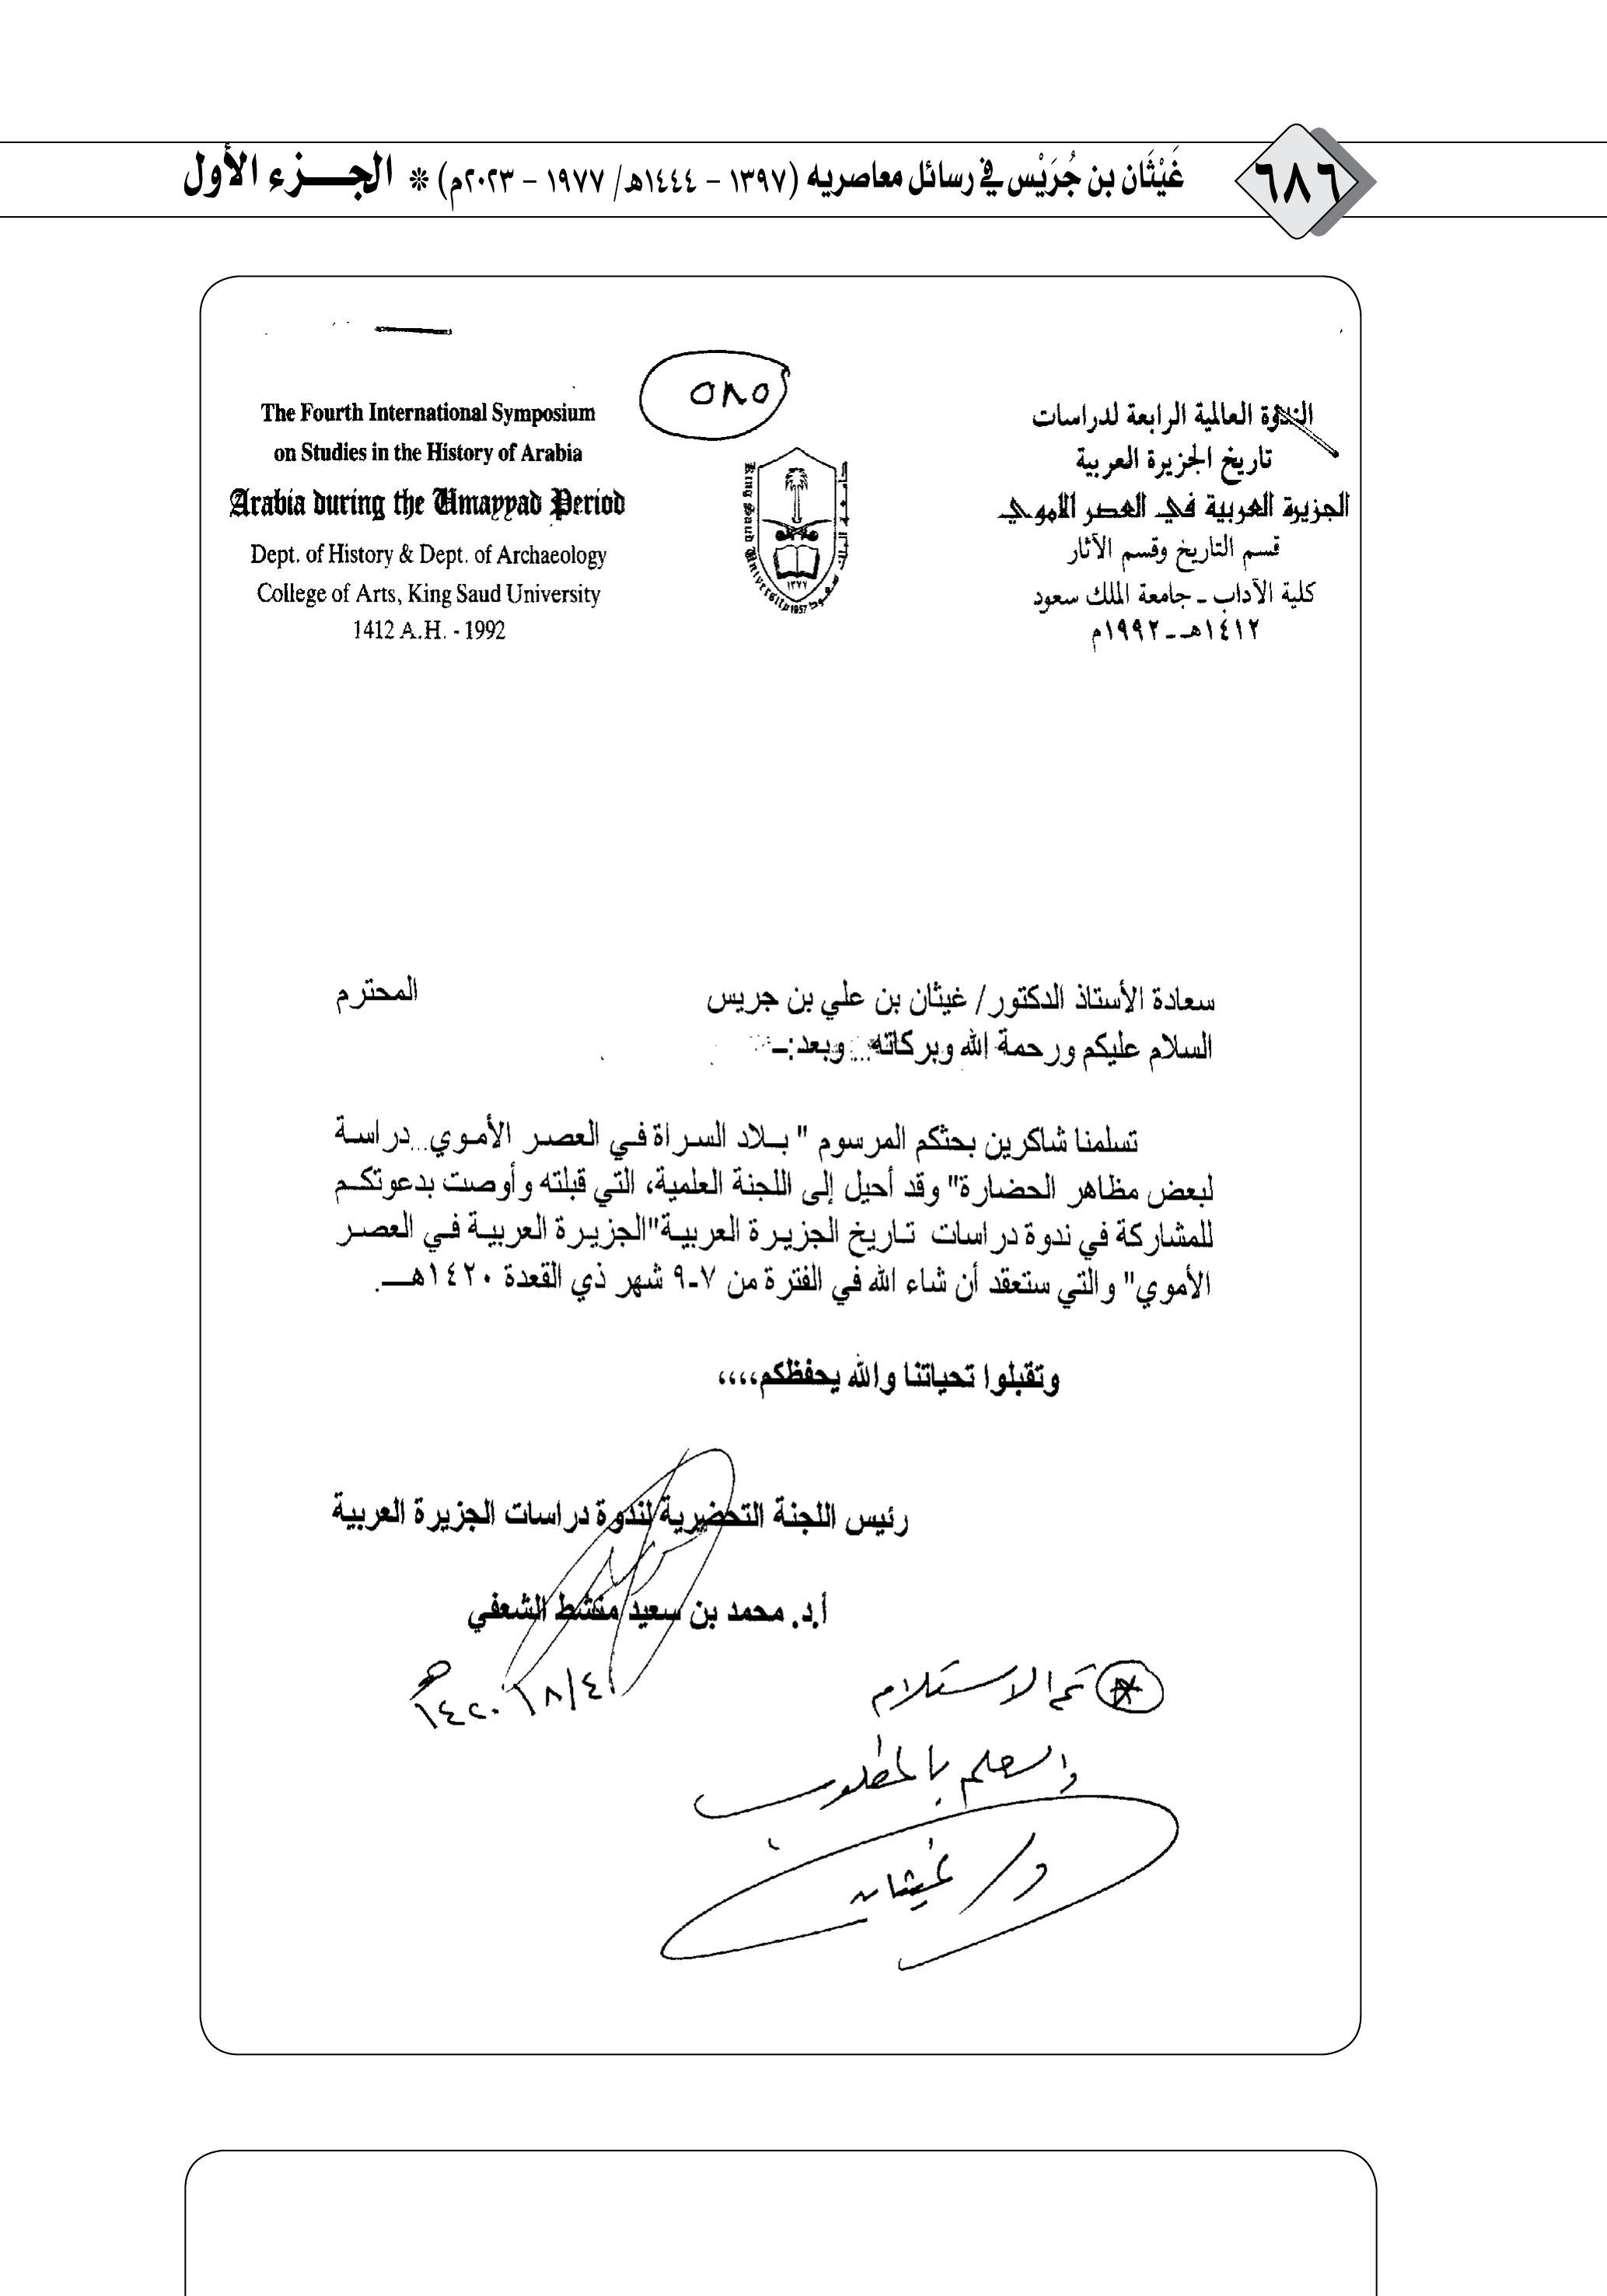 ٦٨٦
غَيْثَان بن جُرَيْس في رسائل معاصريه (١٣٩٧ - ١٤٤٤هـ/ ١٩٧٧ - ٢٠٢٣م) * الجـــزء الأول
٥٨٥
الندوة العالمية الرابعة لدراسات
تاريخ الجزيرة العربية
الجزيرة العربية في العصر الأموي
قسم التاريخ وقسم الآثار
كلية الآداب ـ جامعة الملك سعود
١٤١٢هـ ـ ١٩٩٢م
The Fourth International Symposium
on Studies in the History of Arabia
Arabia during the Umayyad Period
Dept. of History & Dept. of Archaeology
College of Arts, King Saud University
1412 A.H. - 1992
جامعة الملك سعود
King Saud University
١٣٧٧
1957
سعادة الأستاذ الدكتور/ غيثان بن علي بن جريس المحترم
السلام عليكم ورحمة الله وبركاته... وبعد:ـ
تسلمنا شاكرين بحثكم المرسوم " بلاد السراة في العصر الأموي...دراسة
لبعض مظاهر الحضارة" وقد أحيل إلى اللجنة العلمية، التي قبلته وأوصت بدعوتكم
للمشاركة في ندوة دراسات تاريخ الجزيرة العربية"الجزيرة العربية في العصر
الأموي" والتي ستعقد أن شاء الله في الفترة من ٧-٩ شهر ذي القعدة ١٤٢٠هـ.
وتقبلوا تحياتنا والله يحفظكم،،،،
رئيس اللجنة التحضيرية لندوة دراسات الجزيرة العربية
أ.د. محمد بن سعيد منشط الشعفي
تم الاستلام
والعلم بالمطلوب
د/ غيثان
١٤٢٠/٨/٤هـ